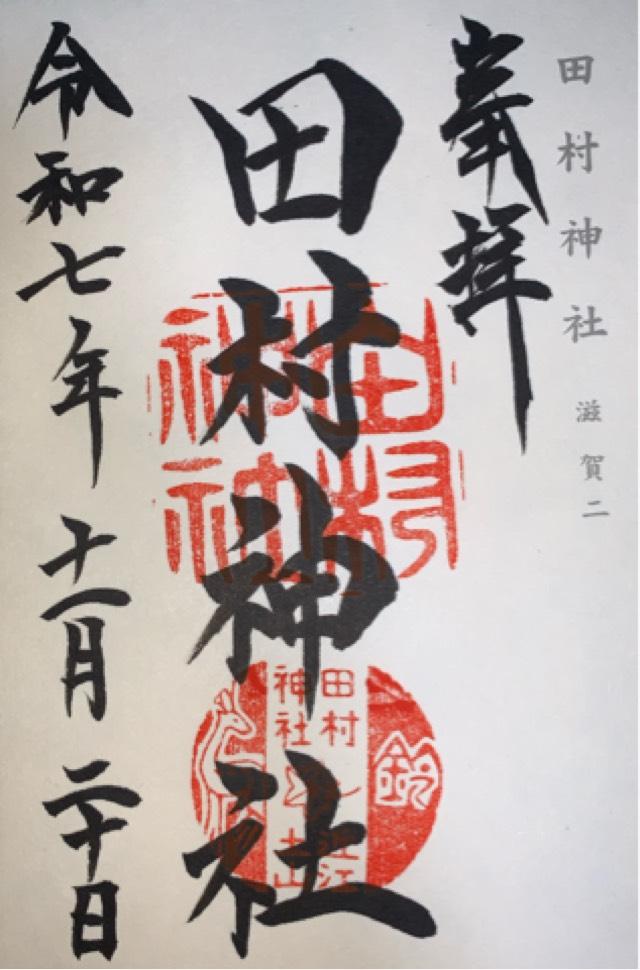 田村神社 滋賀二
奉拝
田村神社
令和七年 十一月 二十日
田村
神社
田村
神社
鈴
近江
土山